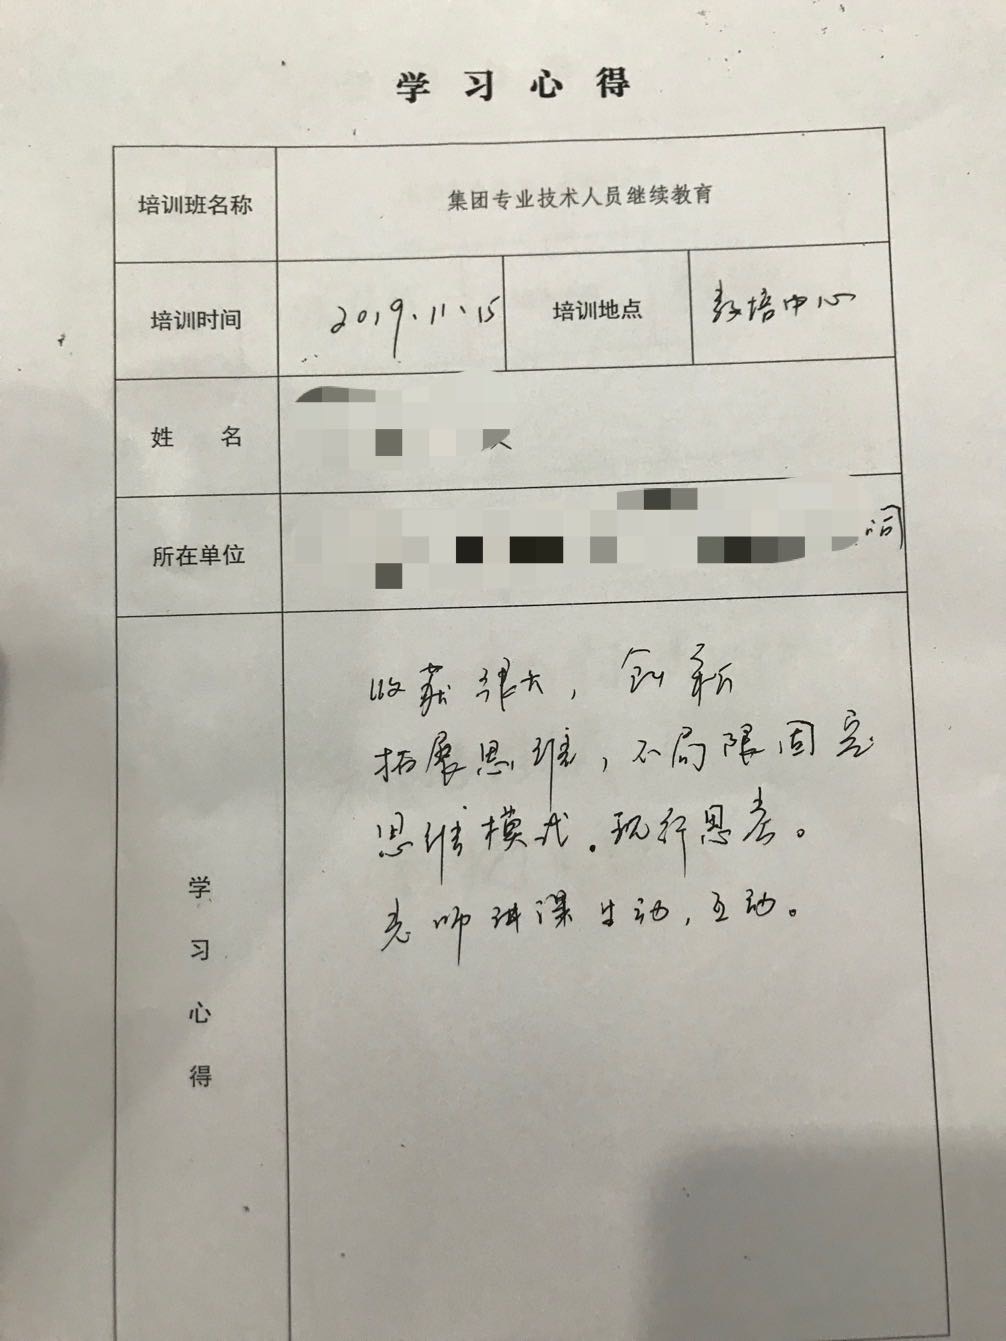 学习心得
培训班名称 集团专业技术人员继续教育
培训时间 2019.11.15 培训地点 教培中心
姓名
所在单位 司
学习心得
收获很大，创新
拓展思维，不局限固定
思维模式。现行思考。
老师讲课生动，互动。